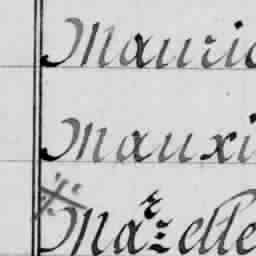 Mauric
Mauxi
Mazelle